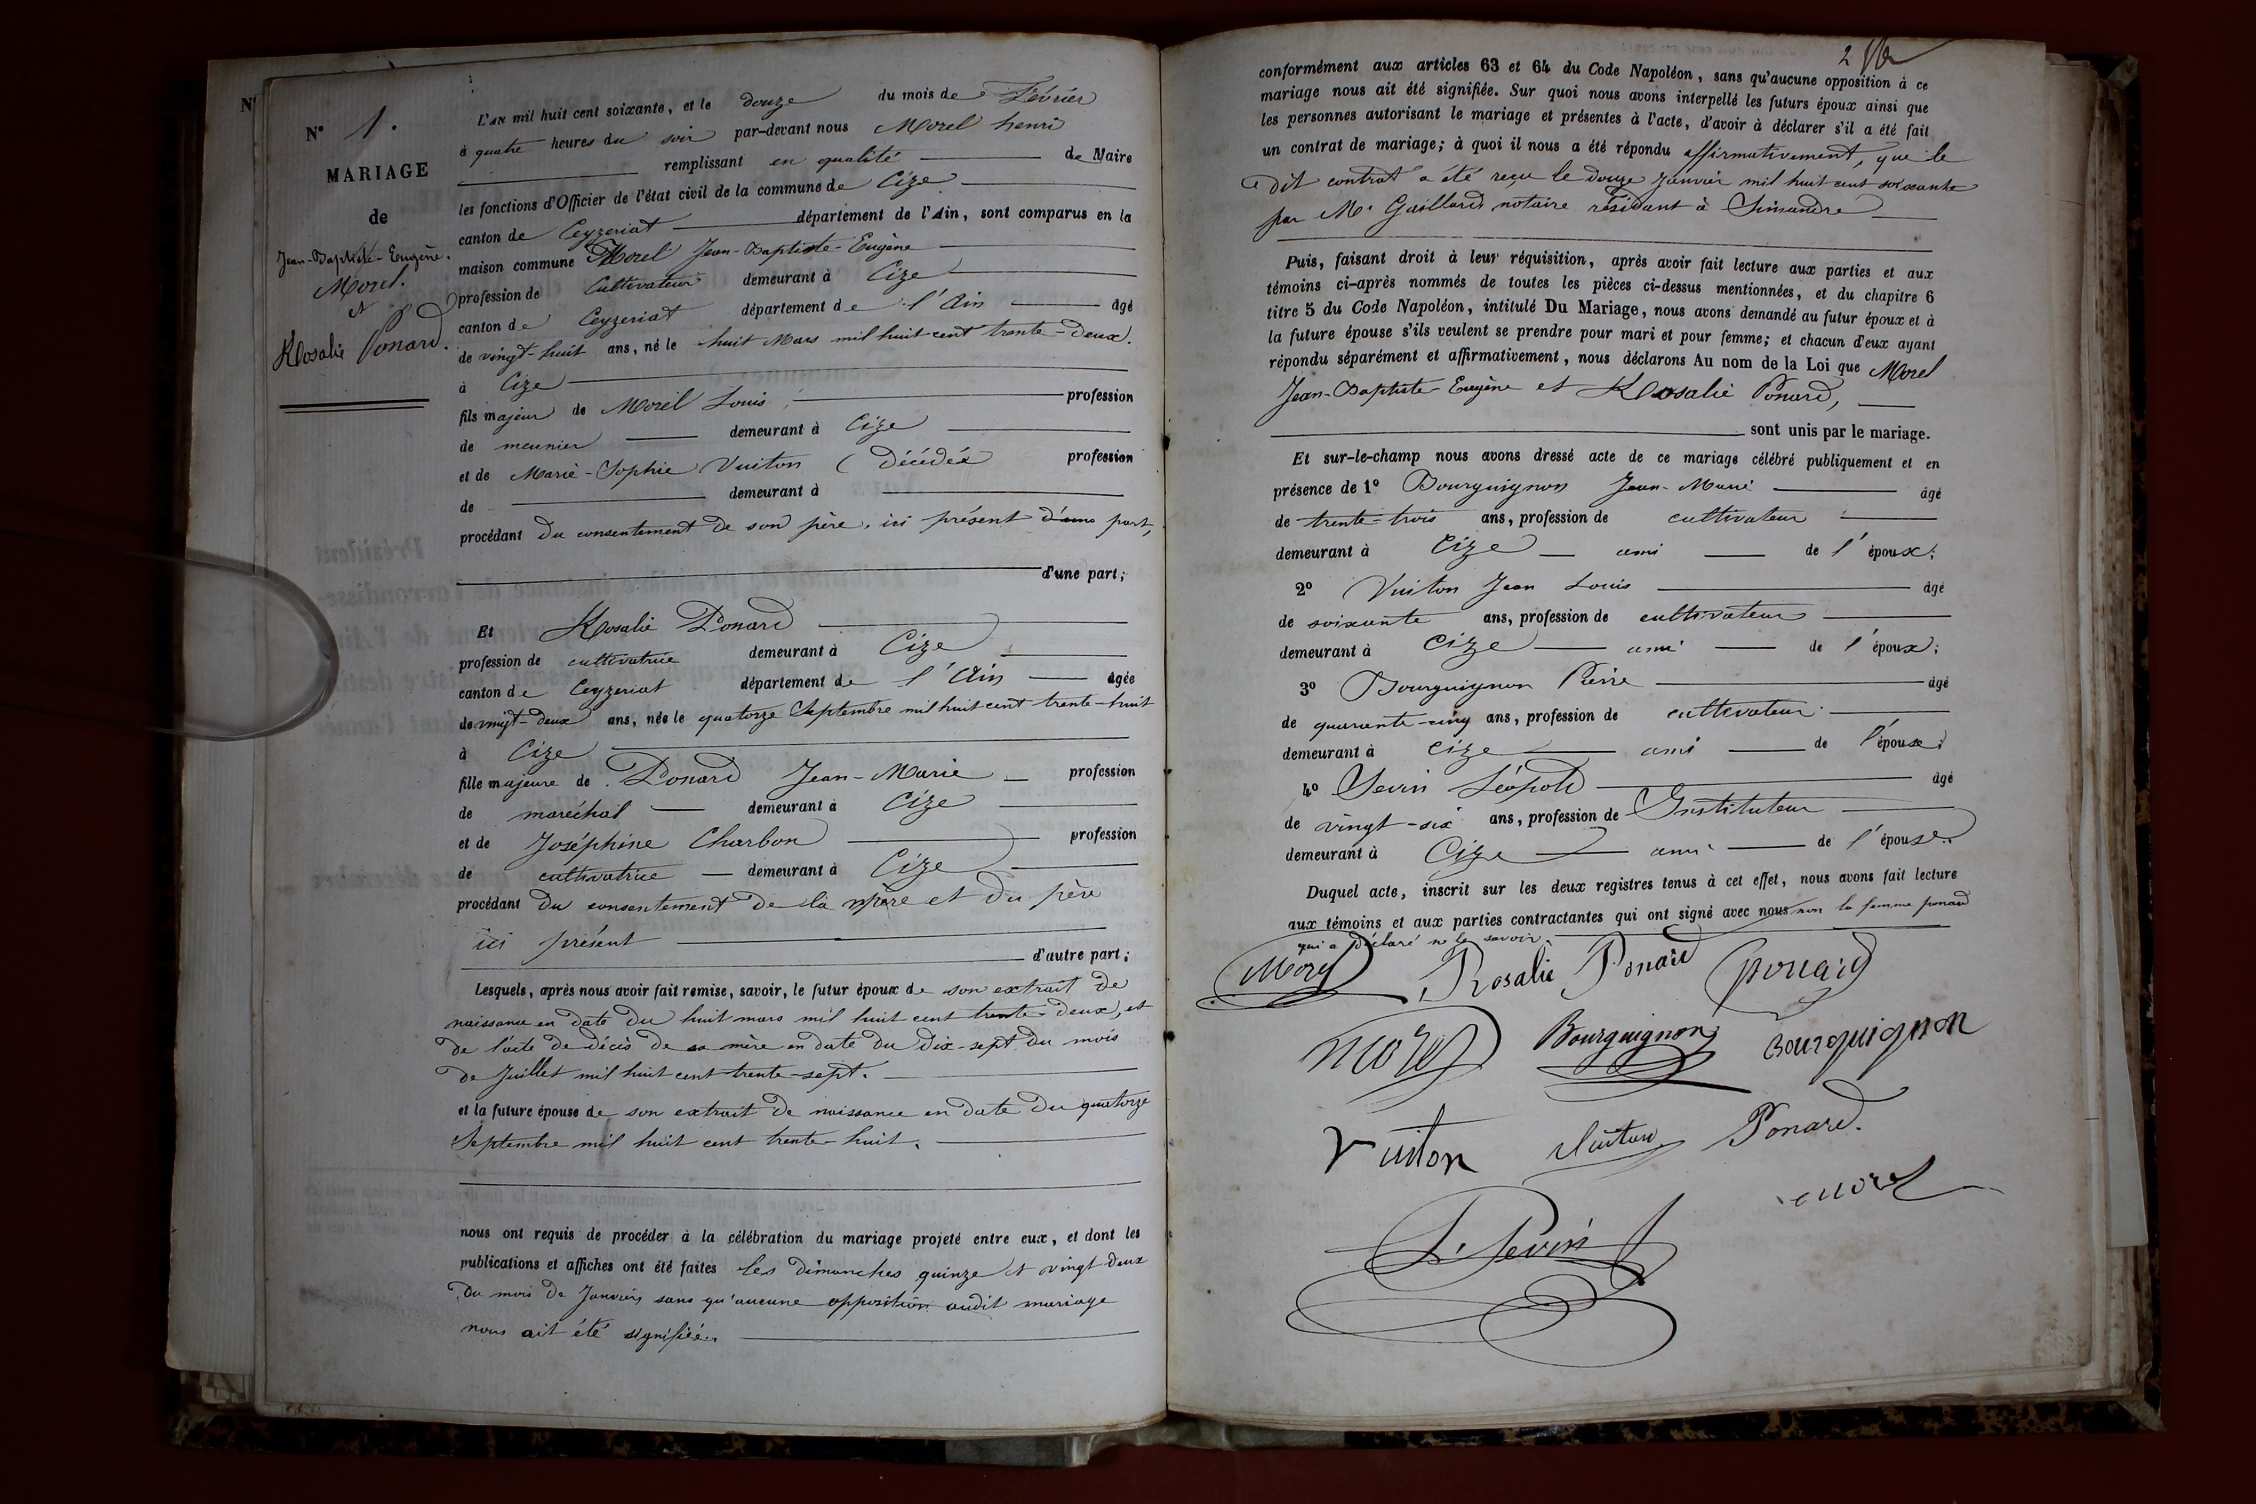 N° 1.
MARIAGE
de
Jean-Baptiste-Eugène
Morel.
et
Rosalie Ponard.
L'AN mil huit cent soixante, et le douze du mois de Février
à quatre heures du soir par-devant nous Morel henri
remplissant en qualité de Maire
les fonctions d'Officier de l'état civil de la commune de Cize
canton de Ceyzeriat département de l'Ain, sont comparus en la
maison commune Morel Jean-Baptiste-Eugène
profession de Cultivateur demeurant à Cize
canton de Ceyzeriat département de l'Ain âgé
de vingt-huit ans, né le huit Mars mil huit cent trente-deux.
à Cize
fils majeur de Morel Louis profession
de meunier demeurant à Cize
et de Marie-Sophie Vuiton (Décédée profession
de demeurant à
procédant du consentement de son père, ici présent d'une part,
d'une part;
Et Rosalie Ponard
profession de cultivatrice demeurant à Cize
canton de Ceyzeriat département de l'Ain âgée
de vingt-deux ans, née le quatorze Septembre mil huit cent trente-huit
à Cize
fille majeure de Ponard Jean-Marie profession
de maréchal demeurant à Cize
et de Joséphine Charbon profession
de cultivatrice demeurant à Cize
procédant du consentement de la mère et du père
ici présent
d'autre part;
Lesquels, après nous avoir fait remise, savoir, le futur époux de son extrait de
naissance en date du huit mars mil huit cent trente-deux, et
de l'acte de décès de sa mère en date du dix-sept du mois
de Juillet mil huit cent trente-sept.
et la future épouse de son extrait de naissance en date du quatorze
Septembre mil huit cent trente-huit.
nous ont requis de procéder à la célébration du mariage projeté entre eux, et dont les
publications et affiches ont été faites les dimanches quinze et vingt deux
du mois de Janvier, sans qu'aucune opposition audit mariage
nous ait été signifiée.
2
conformément aux articles 63 et 64 du Code Napoléon, sans qu'aucune opposition à ce
mariage nous ait été signifiée. Sur quoi nous avons interpellé les futurs époux ainsi que
les personnes autorisant le mariage et présentes à l'acte, d'avoir à déclarer s'il a été fait
un contrat de mariage; à quoi il nous a été répondu affirmativement, que le
dit contrat a été reçu le douze janvier mil huit cent soixante
par Me Gaillard notaire résidant à Simandre
Puis, faisant droit à leur réquisition, après avoir fait lecture aux parties et aux
témoins ci-après nommés de toutes les pièces ci-dessus mentionnées, et du chapitre 6
titre 5 du Code Napoléon, intitulé Du Mariage, nous avons demandé au futur époux et à
la future épouse s'ils veulent se prendre pour mari et pour femme; et chacun d'eux ayant
répondu séparément et affirmativement, nous déclarons Au nom de la Loi que Morel
Jean-Baptiste-Eugène et Rosalie Ponard,
sont unis par le mariage.
Et sur-le-champ nous avons dressé acte de ce mariage célébré publiquement et en
présence de 1° Bourguignon Jean-Marie âgé
de trente-trois ans, profession de cultivateur
demeurant à Cize ami de l'époux;
2° Vuiton Jean Louis âgé
de soixante ans, profession de cultivateur
demeurant à Cize ami de l'époux;
3° Bourguignon Pierre âgé
de quarante-cinq ans, profession de cultivateur
demeurant à Cize ami de l'épouse;
4° Sevin Léopold âgé
de vingt-six ans, profession de Instituteur
demeurant à Cize ami de l'épouse.
Duquel acte, inscrit sur les deux registres tenus à cet effet, nous avons fait lecture
aux témoins et aux parties contractantes qui ont signé avec nous non la femme ponard
qui a déclaré ne le savoir.
Morel Rosalie Ponard Ponard
morel Bourguignon Bourguignon
Vuiton Vuiton Ponard.
morel
L. Sevin